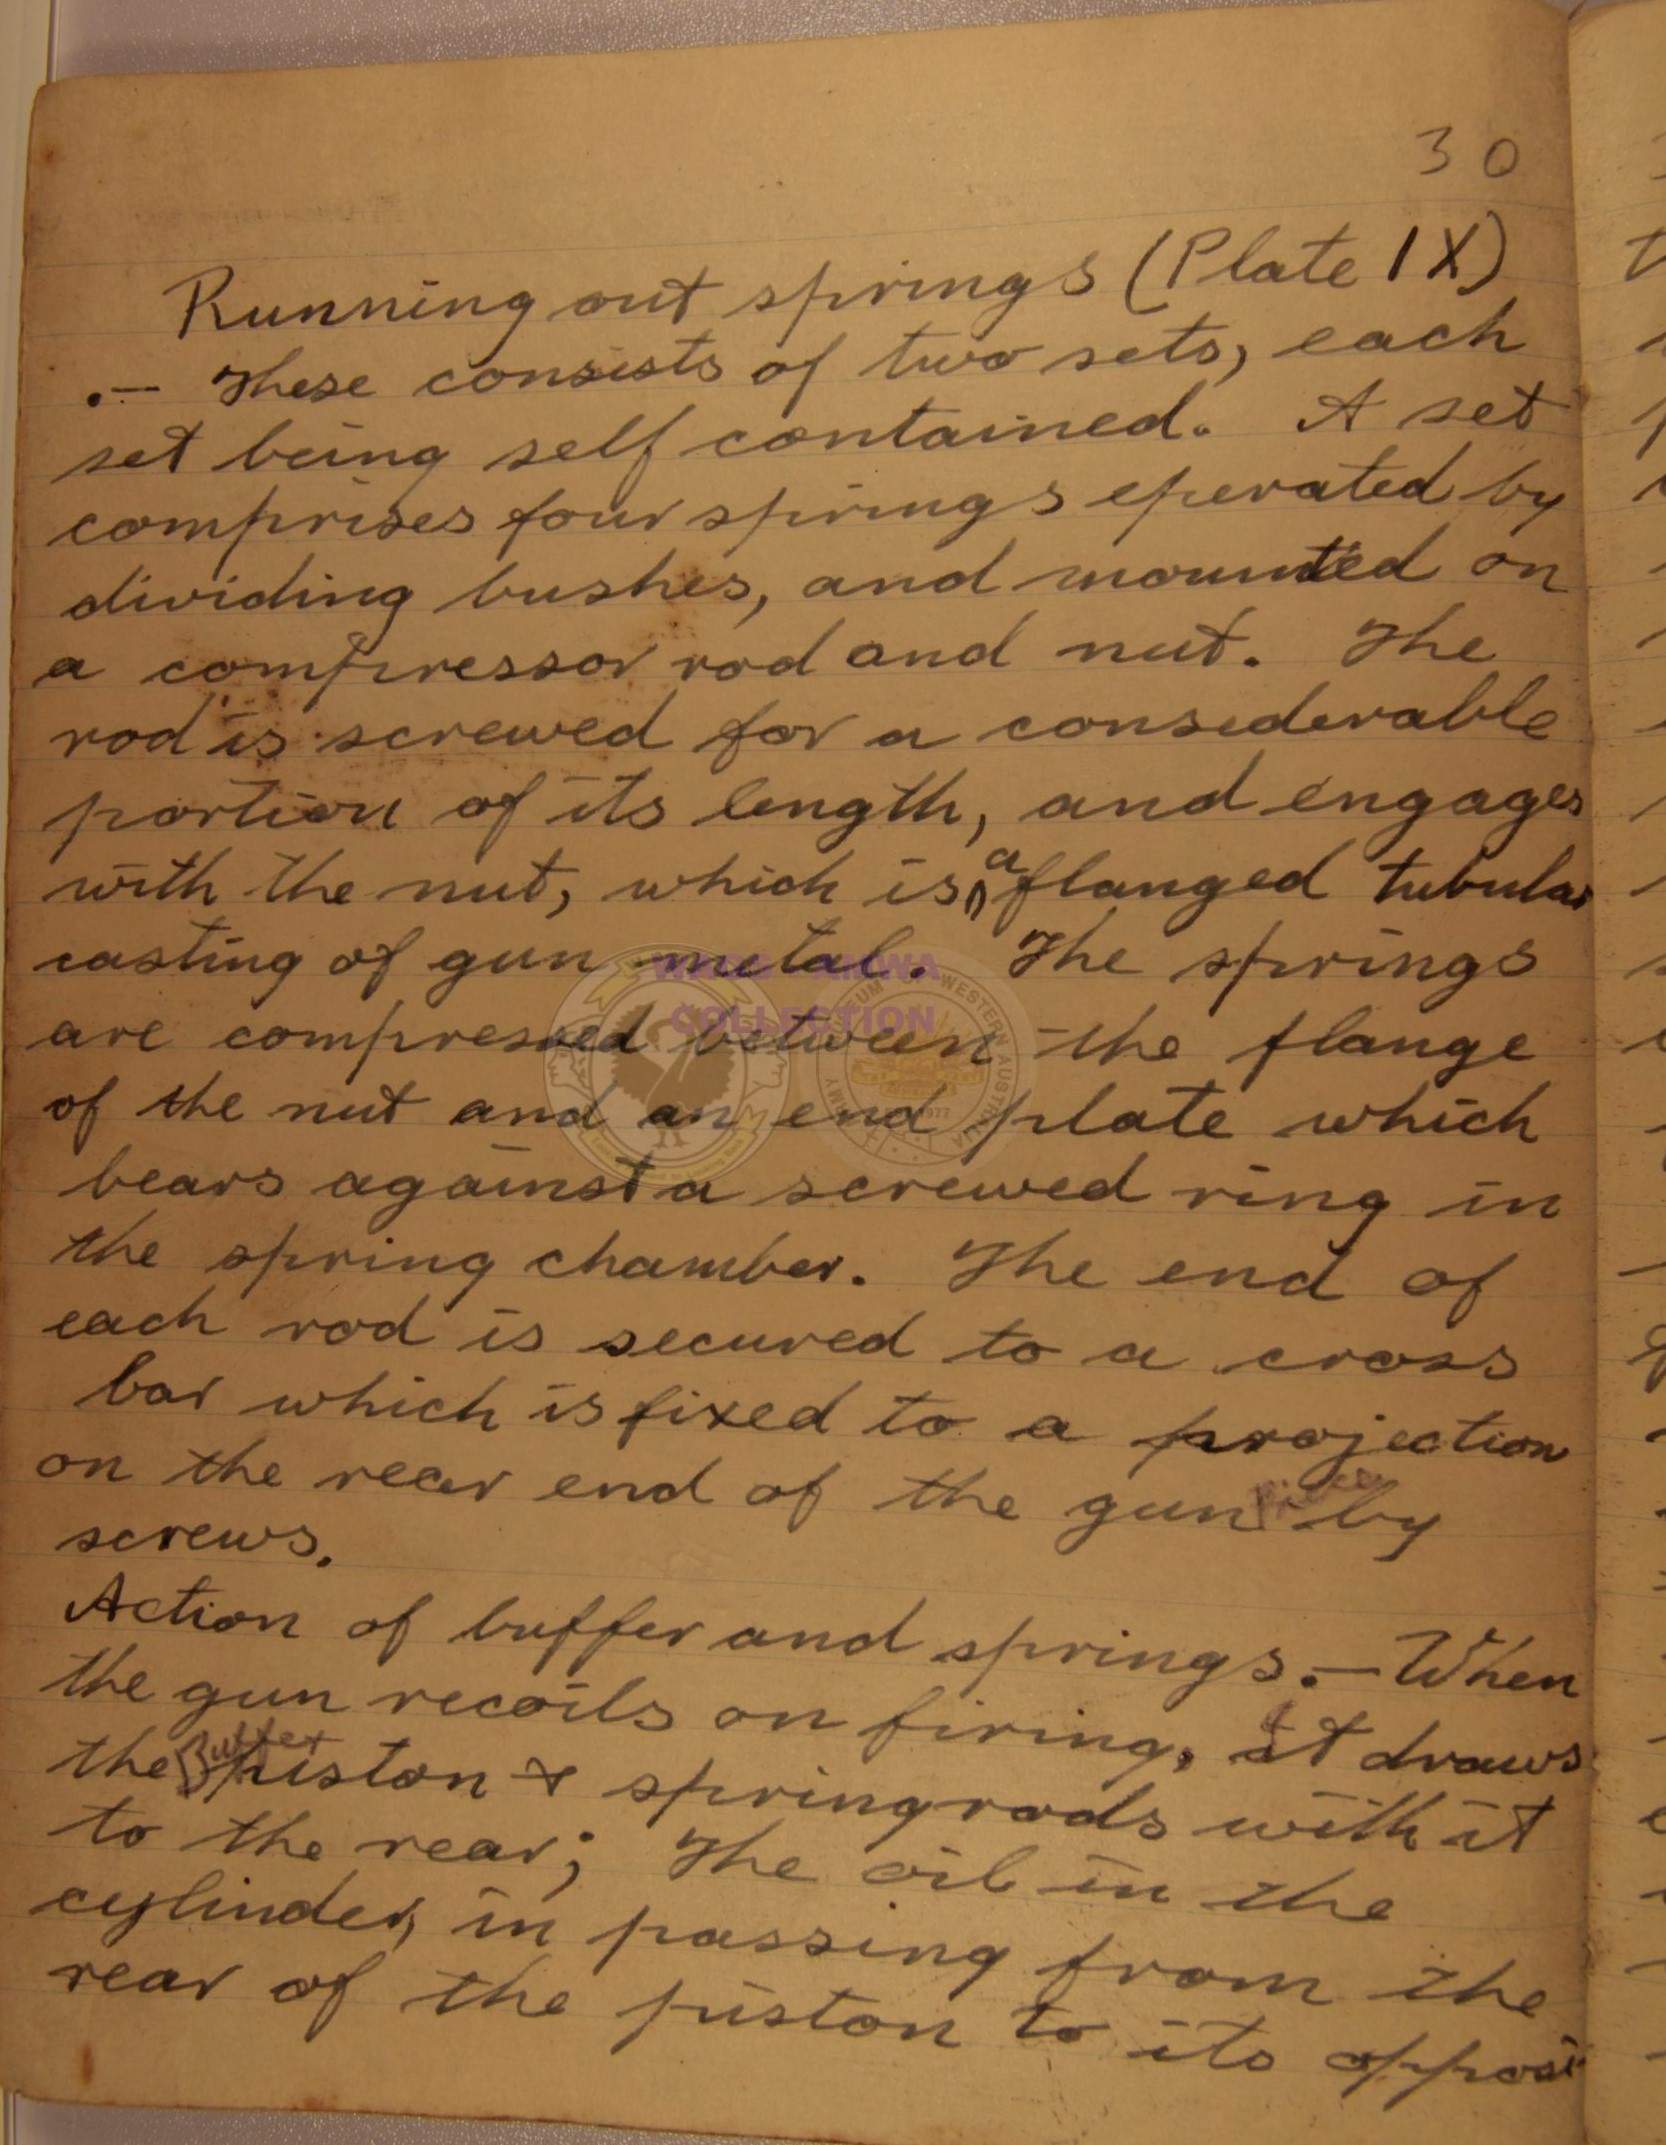 30
Running out springs (Plate IX)
.— These consists of two sets, each
set being self contained. A set
comprises four springs eperated by
dividing bushes, and mounted on
a compressor rod and nut. The
rod is screwed for a considerable
portion of its length, and engages
with the nut, which is a flanged tubular
casting of gun metal. The springs
are compressed between the flange
of the nut and an end plate which
bears against a screwed ring in
the spring chamber. The end of
each rod is secured to a cross
bar which is fixed to a projection
on the rear end of the gun by
screws.
Action of buffer and springs.— When
the gun recoils on firing, it draws
the Buffer piston & spring rods with it
to the rear; The oil in the
cylinder, in passing from the
rear of the piston to its opposi
COLLECTION